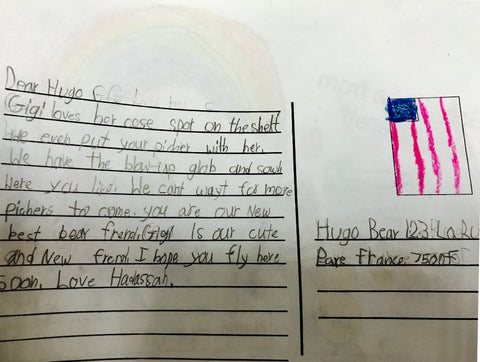 Dear Hugo
Gigi loves her cose spot on the shelf
We even put your picher with her.
We have the blow-up glob and sowh
Were you live. We cant wayt for more
pichers to come. you are our New
best bear frend. Gigi Is our cute
and New frend. I hope you fly here
soon. Love Hadassah.
Hugo Bear 123 La Ru
Pare France 7500